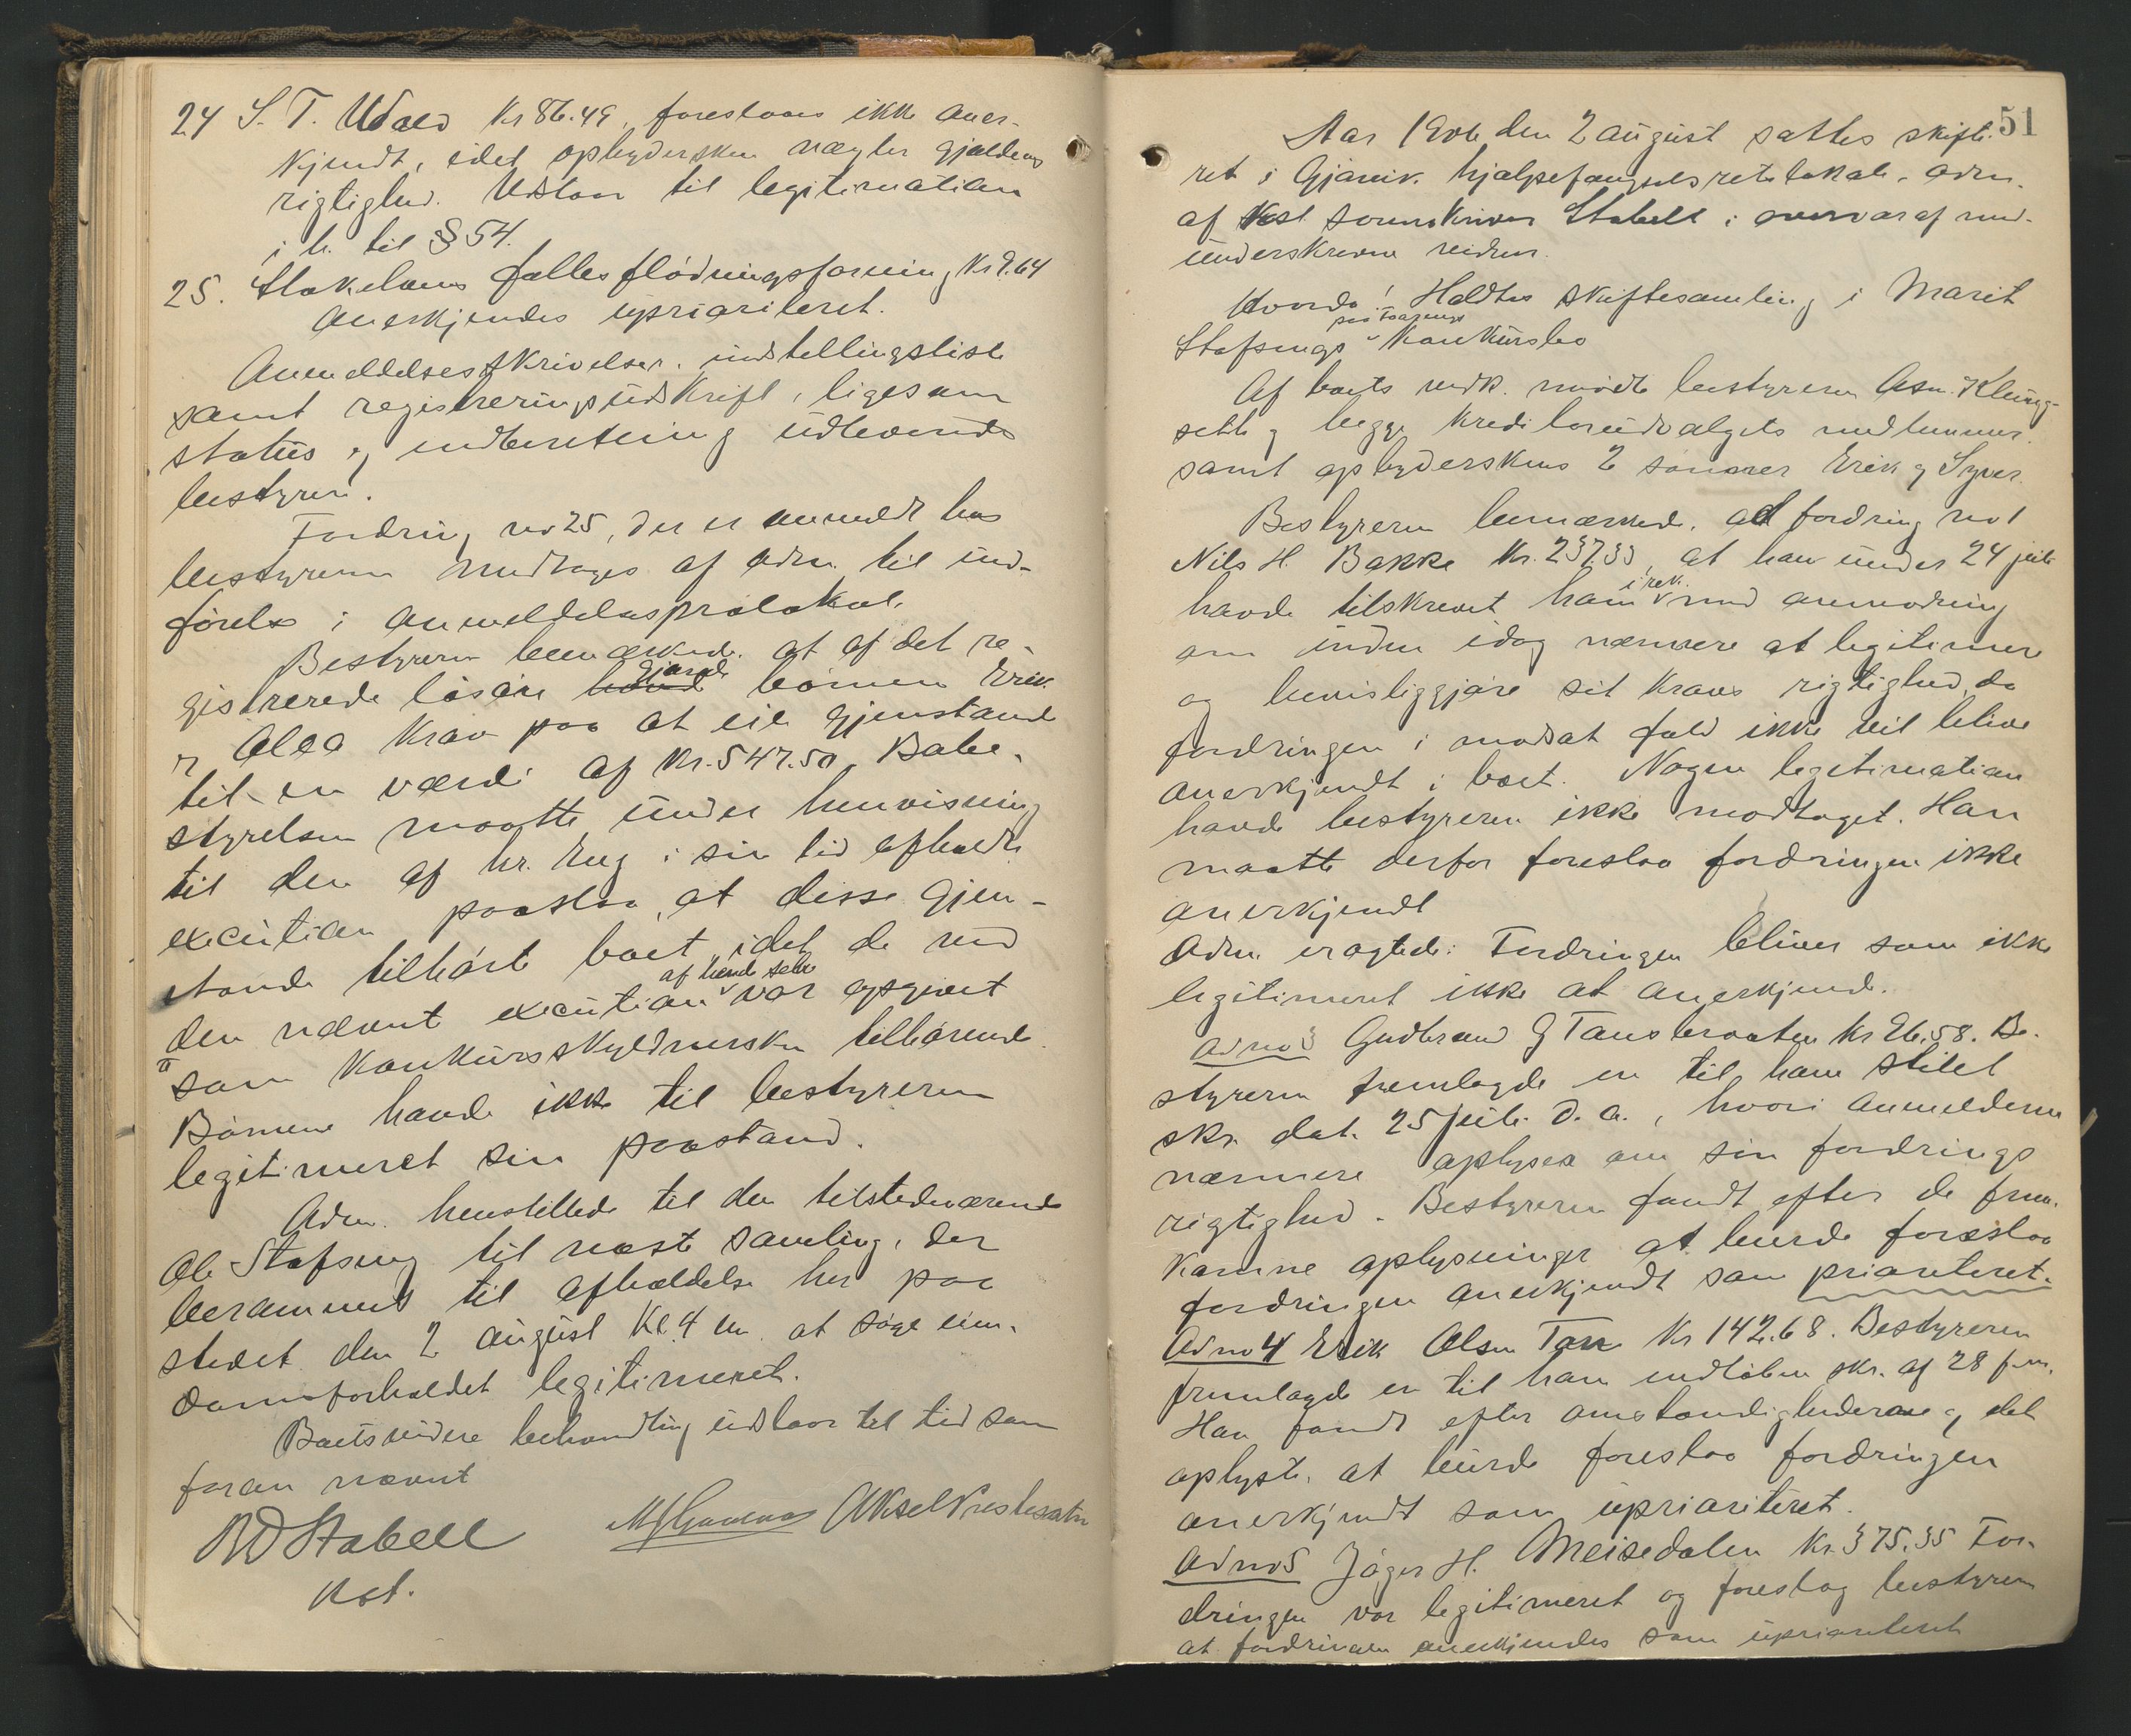 24 S. T. Udald Kr 86.49, foreslaaes ikke aner-
kjendt, idet opbydersken nægter gjældens
rigtighed. Udstaar til legitimation
i h. til § 54.
25. fælles flødningsforening Kr 9.64
anerkjendes uprioriteret.
Anmeldelsesskrivelser, indstillingsliste
samt registreringsudskrift, ligesom
status og indberetning udlevered
bestyreren.
Fordring no 25, der er anmeldt hos
bestyreren modtages af adm. til ind-
førelse i anmeldelsesprotokol.
Bestyreren bemærkede, at af det re-
gistrerede løsøre gjorde børnene Erik
og Olea krav paa at eie gjenstande
til en værdi af Kr. 547.50. Bobe-
styrelsen maatte under henvisning
til den af hr. Eng i sin tid afholdte
execution paastaa, at disse gjen-
stande tilhørte boet, idet de ved
den nævnte execution af hende selv var opgivet
som konkursskyldnersken tilhørende.
Børnene havde ikke til bestyreren
legitimeret sin paastand.
Adm. henstillede til den tilstedeværende
Ole Stafseng til næste samling, der
berammed til afholdelse her paa
stedet den 2 august Kl. 4 em. at søge eien-
domsforholdet legitimeret.
Boets videre behandling udstaar til tid som
foran nævnt
B D Stabell
Kst.
Aksel Kristensen
51
Aar 1906 den 2 august sattes skifte-
ret i Gjøvik hjælpefængsels retslokale, adm.
af Kst sorenskriver Stabell i overvær af med-
underskrevne vidner.
Hvorda! Holdtes skiftesamling i Marit
Stafsengs konkursbo
Af boets vedk. mødte bestyreren Asm. Kling-
og begge kreditorudvalgets medlemmer
samt opbyderskens 2 sønner Erik og Syver.
Bestyreren bemærkede, ad fordring no 1
Nils H. Bakke Kr. 237.33, at han under 24 juli
havde tilskrevet ham i rek. med anmodning
om inden idag nærmere at legitimere
og bevisliggjøre sit kravs rigtighed, da
fordringen i modsat fald ikke vil blive
anerkjendt i boet. Nogen legitimation
havde bestyreren ikke modtaget. Han
maatte derfor foreslaa fordringen ikke
anerkjendt
Adm. eragtede: Fordringen bliver som ikke
legitimeret ikke at anerkjende.
Ad no 3 Gudbrand G Tansbraaten Kr 26.58. Be-
styreren fremlagde en til ham stilet
skr. dat. 25 juli d. a., hvori anmelderen
nærmere oplyser om sin fordrings
rigtighed. Bestyreren fandt efter de frem-
komne oplysninger at burde foreslaa
fordringen anerkjendt som prioriteret.
Ad no 4 Erik Olsen Kr 142.68. Bestyreren
fremlagde en til ham indløben skr. af 28 f. m.
Han fandt efter omstændighederne og det
oplyste, at burde foreslaa fordringen
anerkjendt som uprioriteret.
Ad no 5 Jøger H. Meisedalen Kr. 375.35 For-
dringen var legitimeret og foreslog bestyreren
at fordringen anerkjendes som uprioriteret